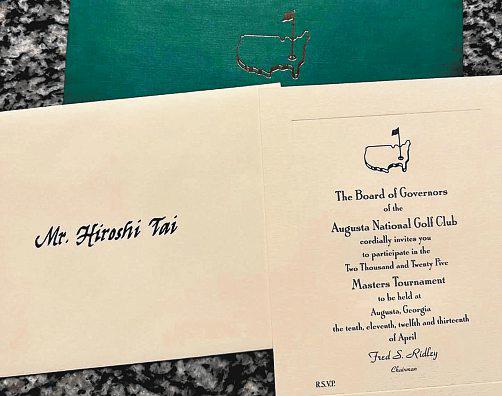 Mr. Hiroshi Tai
The Board of Governors
of the
Augusta National Golf Club
cordially invites you
to participate in the
Two Thousand and Twenty Five
Masters Tournament
to be held at
Augusta, Georgia
the tenth, eleventh, twelfth and thirteenth
of April
Fred S. Ridley
Chairman
R.S.V.P.